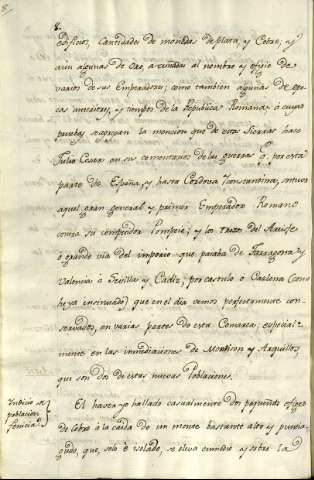 8.
edificios, Cantidades de monedas de plata, y Cobre, y
aun algunas de Oro, acuñadas al nombre y efigie de
varios de sus Emperadores; como tambien algunas de epo-
cas anteriores, y tiempos de la Republica Romana; á cuyas
pruebas se agregan la mencion que de estas Sierras hace
Julio Cesar en sus comentarios de las guerras q.e por esta
parte de España, y hasta Cordova sostuvo
aquel gran general y primer Emperador Romano
contra su competidor Pompeio; y los trozos del Arrecife
o grande via del imperio que pasaba de Tarragona y
Valencia á Sevilla y Cadiz, por Castulo ó Cazlona (como
he ya insinuado) que en el dia vemos perfectamente con-
servados, en varias partes de esta Comarca; especial-
mente en las inmediaciones de Montizon y Arquillos,
que son dos de estas nuevas Poblaciones.
Indicio de
poblacion
fenicia
El haver yo hallado casualmente dos pequeños
de Cobre á la caida de un monte bastante alto y puntia-
gudo, que, solo é isolado, se eleva sobre la